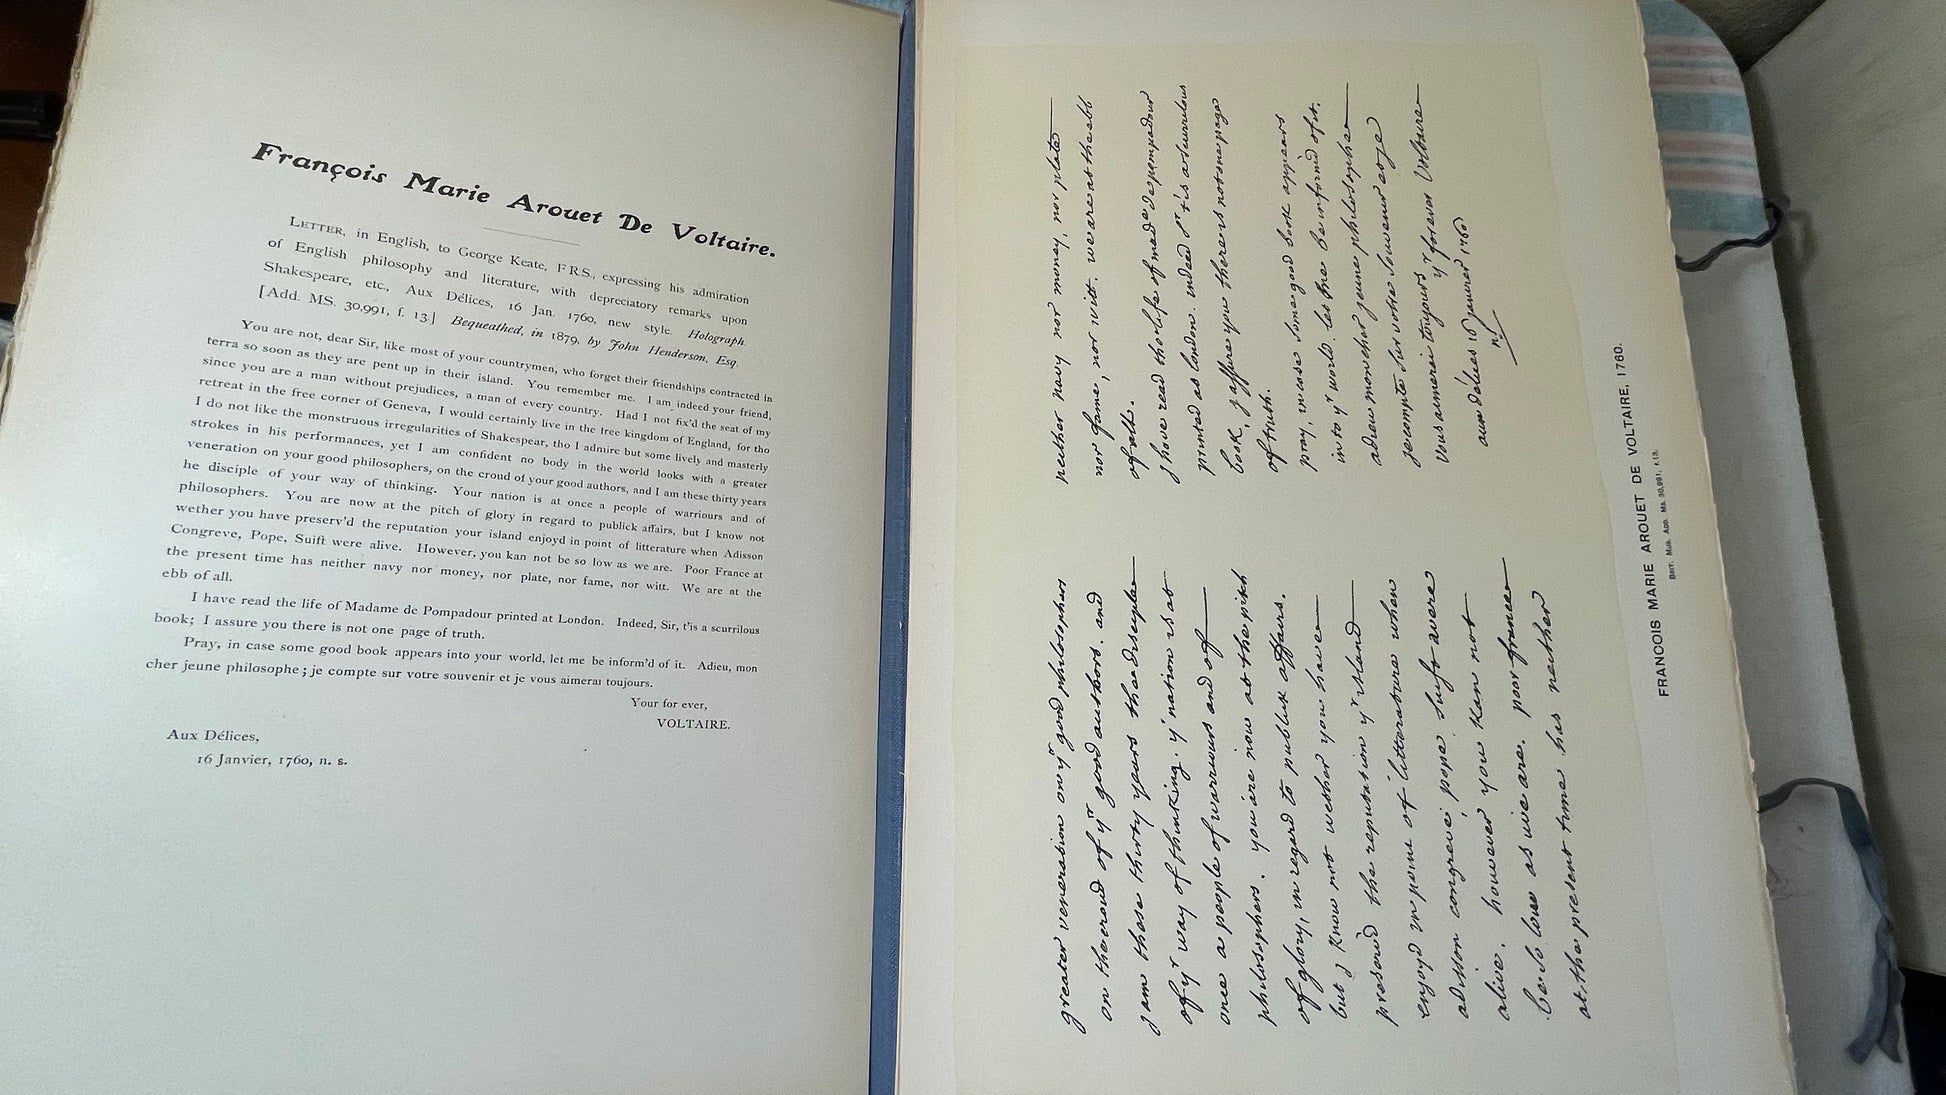 François Marie Arouet De Voltaire.
LETTER, in English, to George Keate, F.R.S., expressing his admiration
of English philosophy and literature, with depreciatory remarks upon
Shakespeare, etc., Aux Délices, 16 Jan. 1760, new style. Holograph.
[Add. MS. 30,991, f. 13.] Bequeathed, in 1879, by John Henderson, Esq.
You are not, dear Sir, like most of your countrymen, who forget their friendships contracted in
terra so soon as they are pent up in their island. You remember me. I am indeed your friend,
since you are a man without prejudices, a man of every country. Had I not fix'd the seat of my
retreat in the free corner of Geneva, I would certainly live in the free kingdom of England, for tho
I do not like the monstruous irregularities of Shakespear, tho I admire but some lively and masterly
strokes in his performances, yet I am confident no body in the world looks with a greater
veneration on your good philosophers, on the croud of your good authors, and I am these thirty years
he disciple of your way of thinking. Your nation is at once a people of warriours and of
philosophers. You are now at the pitch of glory in regard to publick affairs, but I know not
wether you have preserv'd the reputation your island enjoyd in point of litterature when Adisson
Congreve, Pope, Suift were alive. However, you kan not be so low as we are. Poor France at
the present time has neither navy nor money, nor plate, nor fame, nor witt. We are at the
ebb of all.
I have read the life of Madame de Pompadour printed at London. Indeed, Sir, t'is a scurrilous
book; I assure you there is not one page of truth.
Pray, in case some good book appears into your world, let me be inform'd of it. Adieu, mon
cher jeune philosophe; je compte sur votre souvenir et je vous aimerai toujours.
Your for ever,
VOLTAIRE.
Aux Délices,
16 Janvier, 1760, n. s.
greater veneration on yr good philosophers
on the croud of yr good authors, and
j am these thirty years the disciple
of yr way of thinking. yr nation is at
once a people of warriours and of
philosophers. you are now at the pitch
of glory, in regard to publick affairs.
but j know not wether you have
preserv'd the reputation yr island
enjoyd in point of litterature when
adisson congreve pope suift were
alive. however you kan not
be so low as we are. poor france
at the present time has neither
neither navy nor money, nor plate
nor fame, nor witt. we are at the ebb
of all.
j have read the life of made de pompadour
printed at london. indeed sr t'is a scurrilous
book, j assure you there is not one page
of truth.
pray, in case some good book appears
into yr world. let me be inform'd of it.
adieu mon cher jeune philosophe
je compte sur votre souvenir et je
vous aimerai toujours yr forever Voltaire
aux délices 16 janvier 1760
n. s.
FRANCOIS MARIE AROUET DE VOLTAIRE, 1760.
BRIT. MUS. ADD. MS. 30,991. f.13.